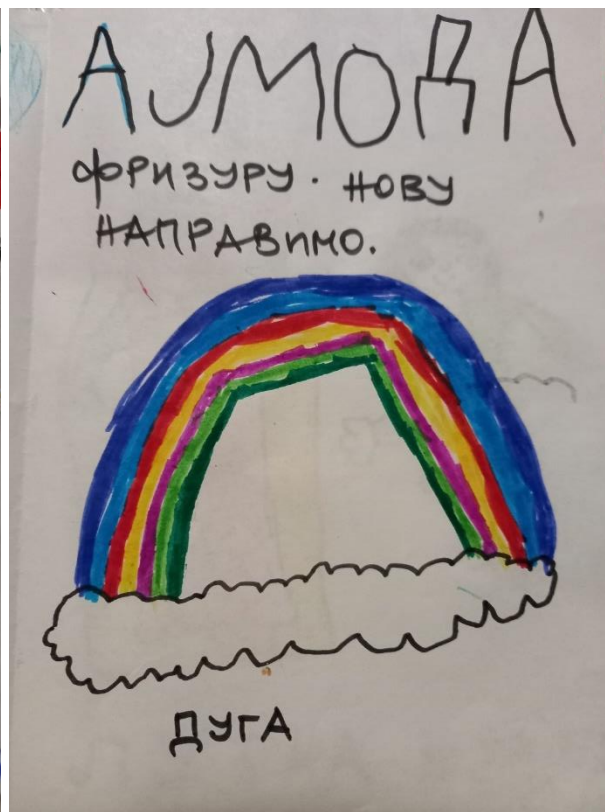 АЈМОДА
ФРИЗУРУ. НОВУ
НАПРАВИМО.
ДУГА